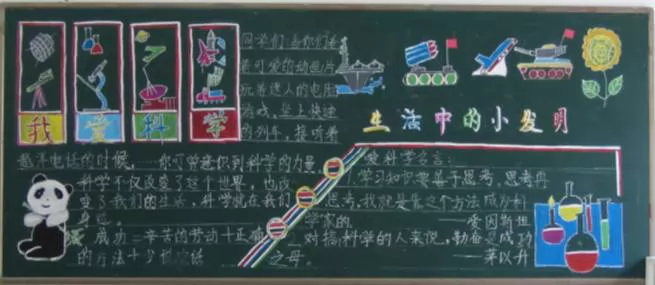 我爱科学
同学们:当你们看
着可爱的动画片
玩着迷人的电脑
游戏,坐上快速
的列车,接听着
越洋电话的时候,…你可曾意识到科学的力量
科学不仅改变了这个世界,也改
变了我们的生活,科学就在我们
身边。
成功=辛苦的劳动+正确
的方法+少说空话
生活中的小发明
爱科学名言:
1.学习知识要善于思考,思考再
思考,我就是靠这个方法成为科
学家的。——爱因斯坦
对搞科学的人来说,勤奋是成功
之母。——茅以升